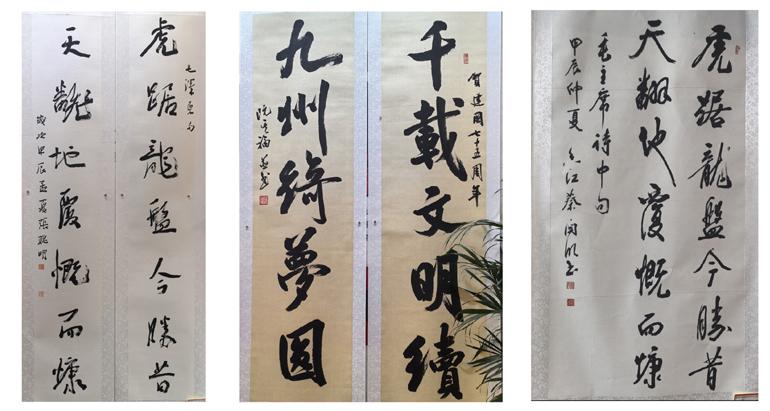 毛澤東句
虎踞龍盤今勝昔
天翻地覆慨而慷
歲次甲辰孟夏張
賀建國七十五周年
千載文明續
九州綺夢圓
虎踞龍盤今勝昔
天翻地覆慨而慷
毛主席詩中句
甲辰仲夏 江蔡